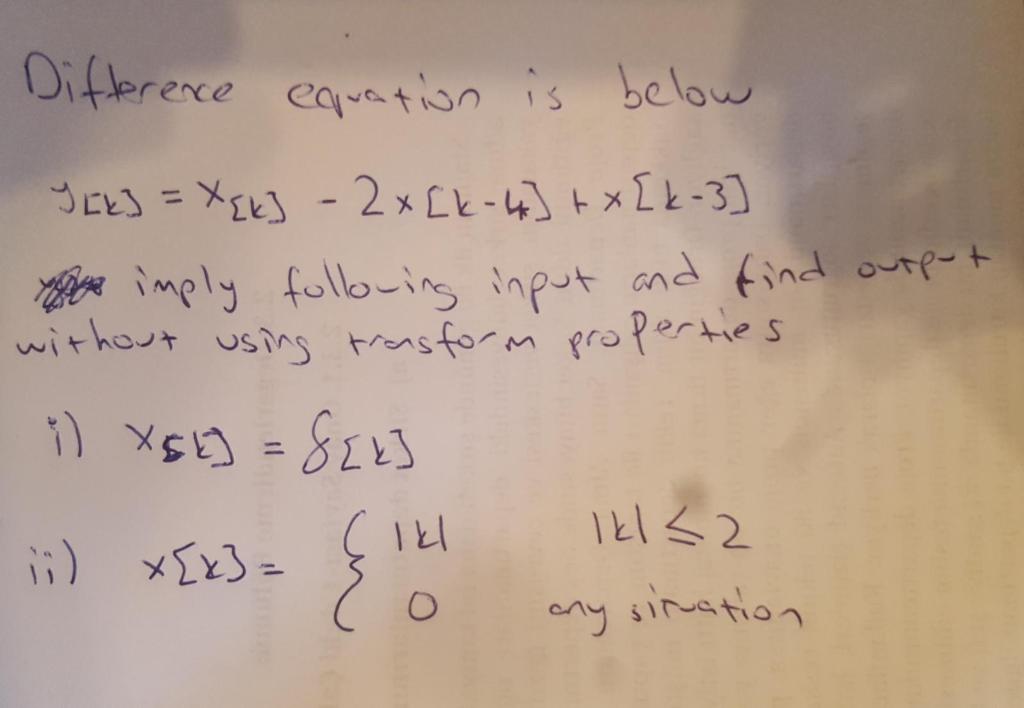 Difference equation is below
y[k] = x[k] - 2x[k-4] + x[k-3]
imply following input and find output
without using transform properties
i) x[k] = δ[k]
ii) x[k] = { |k| |k| ≤ 2
0 any situation